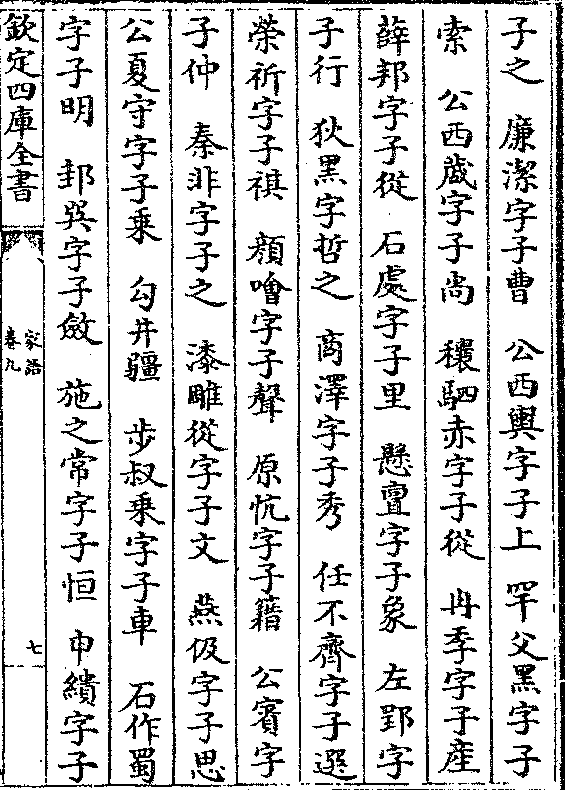 子之　廉潔字子曹　公西輿字子上　罕父黑字子
索　公西蒧字子尚　穰駟赤字子從　冉季字子產
薛邦字子從　石處字子里　懸亶字子象　左郢字
子行　狄黑字哲之　商澤字子秀　任不齊字子選
榮祈字子祺　顏噲字子聲　原忼字子籍　公賓字
子仲　秦非字子之　漆雕從字子文　燕伋字子思
公夏守字子乘　勾井疆　步叔乘字子車　石作蜀
字子明　邽巽字子斂　施之常字子恒　申繢字子
欽定四庫全書
家語
卷九
七